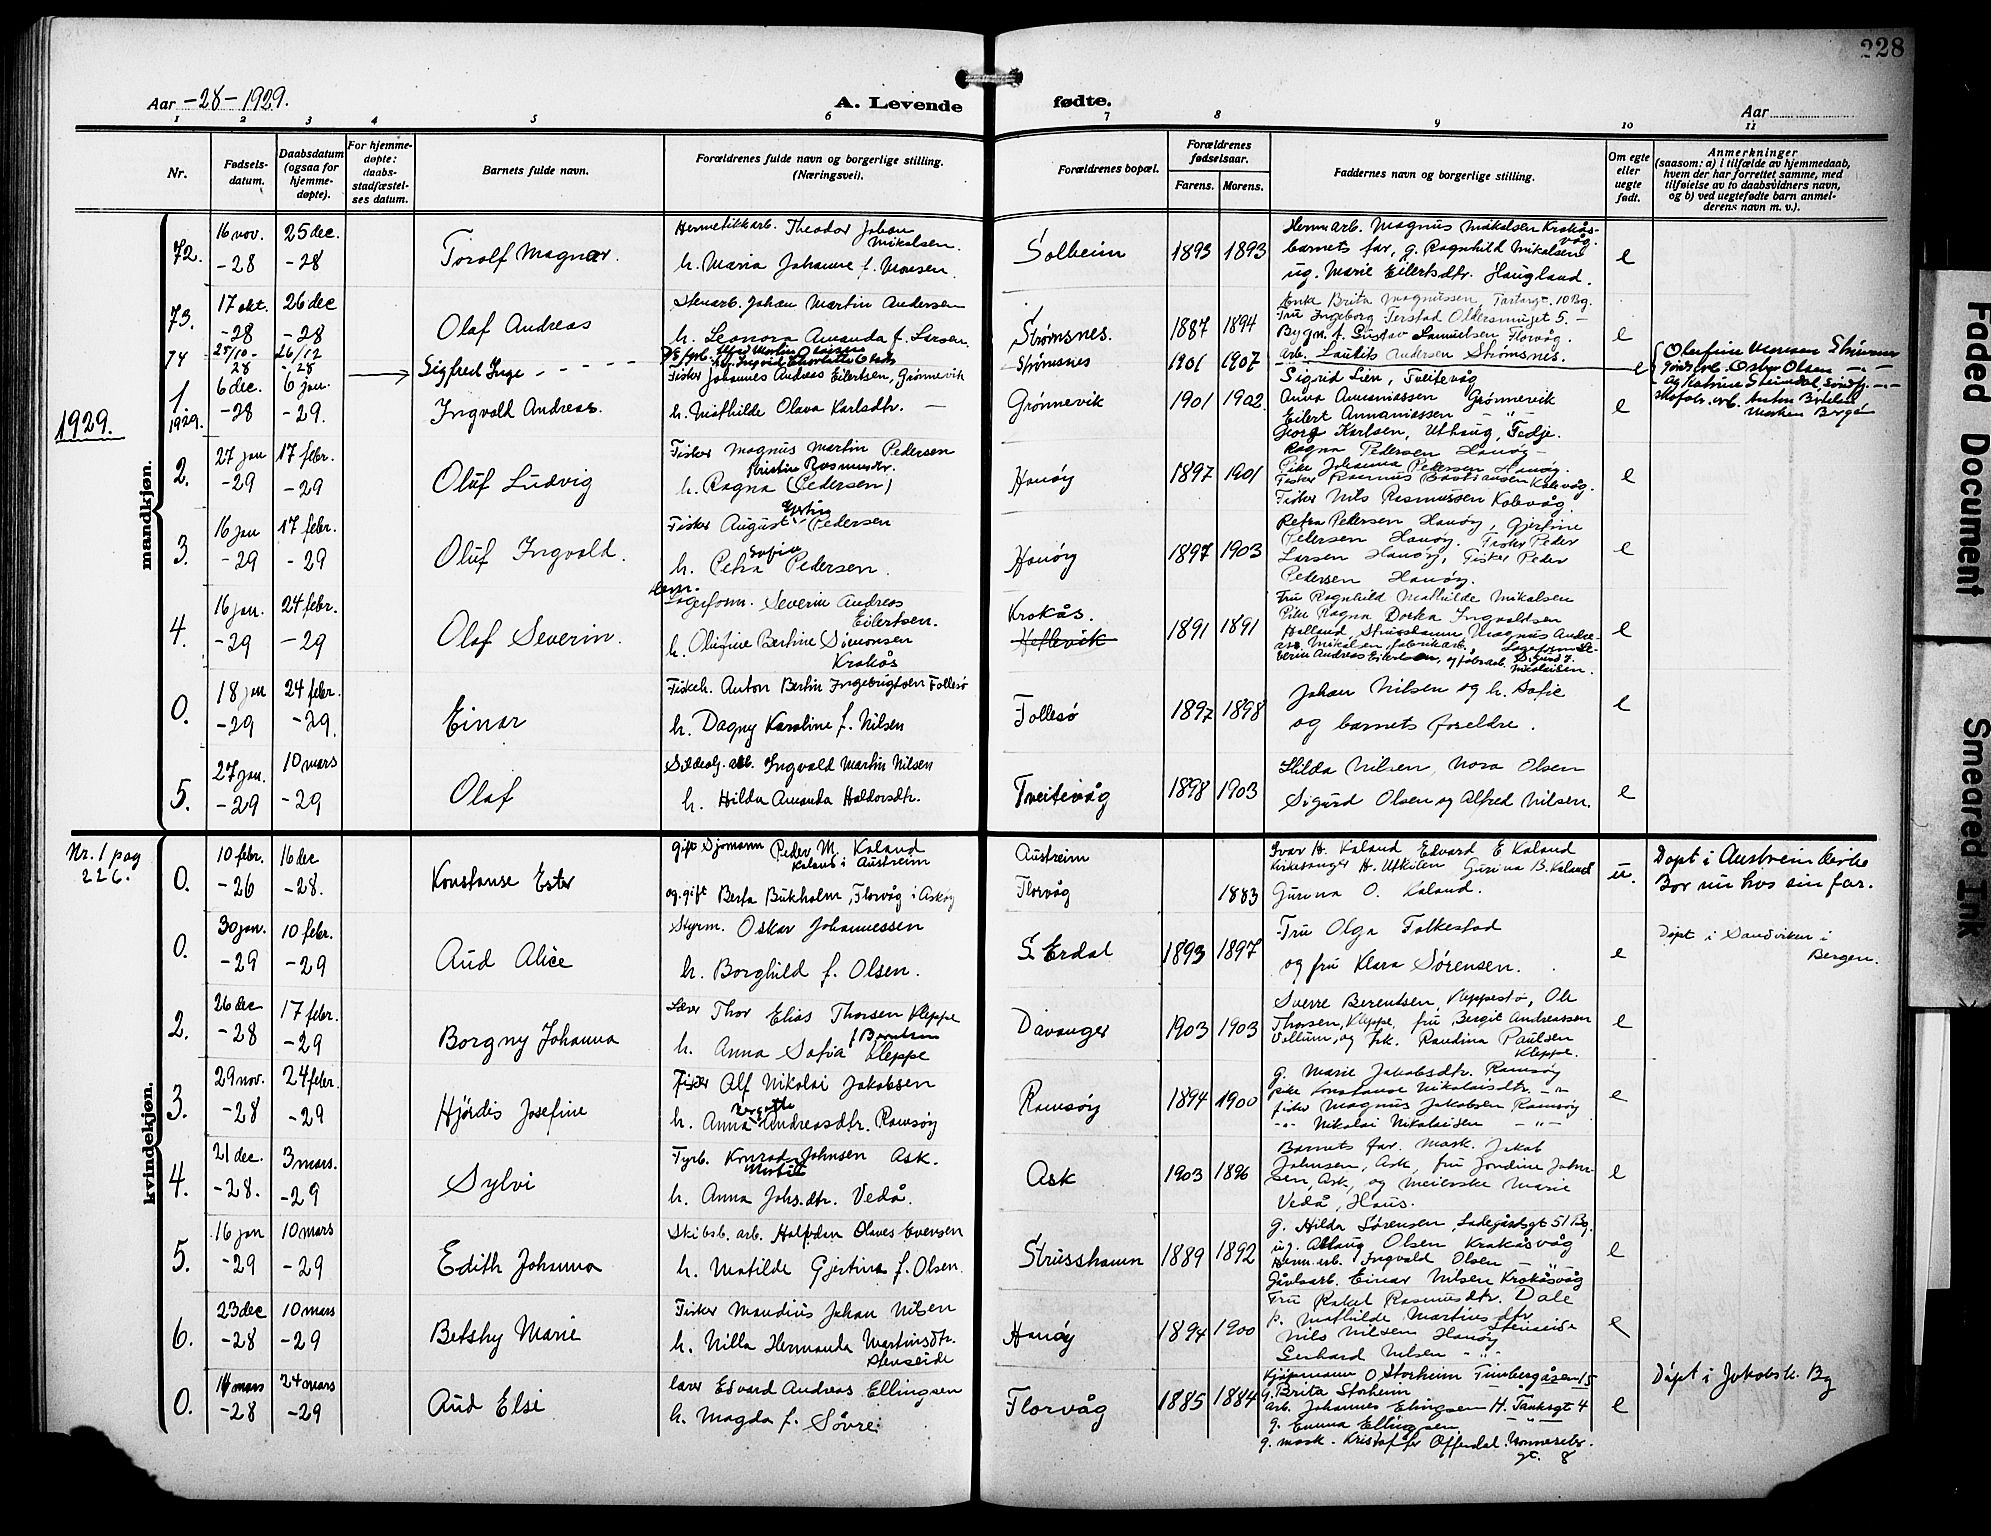 228
Aar -28-1929.
A. Levende fødte.
Aar
1 2 3 4 5 6 7 8 9 10 11
Nr.
Fødsels-
datum.
Daabsdatum
(ogsaa for
hjemme-
døpte).
For hjemme-
døpte:
daabs-
stadfæstel-
ses datum.
Barnets fulde navn.
Forældrenes fulde navn og borgerlige stilling.
(Næringsvei).
Forældrenes bopæl.
Forældrenes
fødselsaar.
Farens. Morens.
Faddernes navn og borgerlige stilling.
Om egte
eller
uegte
født.
Anmerkninger
(saasom: a) i tilfælde av hjemmedaab,
hvem der har forrettet samme, med
tilføielse av to daabsvidners navn,
og b) ved uegtefødte barn anmel-
derens navn m. v.).
mandkjøn.
72.
16 nov.
-28
25 dec.
-28
Torolf Magnar.
Hermetikkarb. Theodor Johan
Mikalsen.
h. Maria Johanne f. Monsen.
Solheim
1893 1893
Hermarb. Magnus Mikalsen Krokås-
våg.
barnets far, g. Ragnhild Mikalsen
ug. Marie Eilertsdtr. Haugland.
e
73.
17 okt.
-28
26 dec
-28
Olaf Andreas
Stenarb. Johan Martin Andersen
h. Leonora Amanda f. Larsen
Strømsnes.
1887 1894
Enke Brita Magnussen, 10 Bg.
Fru Ingeborg Terstad 5.
Bygm. A. Gustav Samuelsen Florvåg.
arb. Lauritz Andersen Strømsnes.
e
74
28/10-
28
26/12
28
Sigfred Inge
Strømsnes
1901 1907
e
Olsen
1929.
1
1929.
6 dec.
-28
6 jan.
-29.
Ingvald Andreas.
Fisker Johannes Andreas Eilertsen, Grønnevik
h. Mathilde Olava Karlsdtr.
Grønnevik
1901 1902
Sigrid Lien, Tveitevåg
Anna Annaniassen Grønnevik
Eilert Annaniassen - " -
Georg Karlsen, Uthaug, Fedje.
e
2.
27 jan
-29
17 febr.
-29
Oluf Ludvig
Fisker Magnus Martin Pedersen
Kristine Rasmusdtr.
h. Ragna (Pedersen)
Hanøy
1897 1901
Ragna Pedersen Hanøy -
Pike Johanna Pedersen Hanøy.
Fisker Rasmus Bastiansen Kolevåg.
Fisker Nils Rasmussen Kolevåg.
e
3.
16 jan
-29
17 febr.
-29
Oluf Ingvald.
Fisker August Pedersen
Sofie
h. Petra Pedersen.
Hanøy
1897 1903
Petra Pedersen Hanøy, Gjertine
Pedersen Hanøy. Fisker Peder
Larsen Hanøy, Fisker Peder
Pedersen Hanøy.
e
4.
16 jan.
-29
24 febr.
-29
Olaf Severin.
Severin Andreas
Eilertsen.
h. Olufine Bertine Simonsen
Krokås
Krokås.
Hetlevik
1891 1891
Fru Ragnhild Mathilde Mikalsen
Pike Ragna Dorka Ingvaldsen
Holland, Strusshamn, Magnus Andre-
as Mikalsen, fabrikarb. Lageform. Se-
verin Andreas Eilertsen, og
Nikolaisen.
e
0.
18 jan
-29
24 febr.
-29.
Einar
Fiskeh. Anton Bertin Ingebrigtsen Follesø
h. Dagny Karoline f. Nilsen
Follesø
1897 1898
Johan Nilsen og h. Sofie
og barnets foreldre.
e
5.
27 jan.
-29
10 mars
-29
Olaf
Sildeolj. arb. Ingvald Martin Nilsen
h. Hilda Amanda Haldorsdtr.
Tveitevåg
1898 1903
Hilda Nilsen, Nora Olsen
Sigurd Olsen og Alfred Nilsen.
e
kvindekjøn.
Nr. 1 pag
226.
0.
10 febr.
-26
16 dec
-28.
Konstanse Ester
gift Sjømann Peder M. Kaland
Kaland i Austreim
og gift Berta Bukholm, Florvåg i Askøy
Austreim
Florvåg
1883
Ivar H. Kaland Edvard E Kaland
Kirkesanger H. Utkilen Gurina B. Kaland
Gurina O. Kaland.
u.
Døpt i Austreim kirke
Bor nu hos sin far.
0.
30 jan.
-29
10 febr.
-29
Aud Alice
Styrm. Oskar Johannessen
h. Borghild f. Olsen.
S. Erdal
1893 1897
Fru Olga Falkestad
og fru Klara Sørensen.
e
Døpt i Sandviken i
Bergen.
2.
26 dec
-28
17 febr.
-29
Borgny Johanna
Laver Thor Elias Thorsen Kleppe
f. Berntsen
h. Anna Sofia Kleppe
Davanger
1903 1903
Sverre Berentsen, Kleppestø, Ole
Thorsen, Kleppe, fru Bergit Andreassen
Vollum, og frk. Randina Paulsen
Kleppe.
e
3.
29 nov.
-28
24 febr.
-29
Hjørdis Josefine
Fisker Alf Nikolai Jakobsen
h. Anna Andreasdtr. Ramsøy
Ramsøy
1894 1900
g. Marie Jakobsdtr. Ramsøy
pike Konstanse Nikolaisdtr. - " -
fisker Magnus Jakobsen Ramsøy
- " - Nikolai Nikolaisen - " -
e
4.
21 dec.
-28.
3 mars.
-29
Sylvi
Fyrb. Konrad Johnsen Ask.
h. Anna Johs.dtr. Vedå.
Ask
1903 1896
Barnets far. Mask. Jakob
Johnsen, Ask, fru Jondine John-
sen, Ask, og meierske Marie
Vedå, Haus.
e
5.
16 jan
-29
10 mars
-29
Edith Johanna
Skibsb. arb. Halfdan Olaves Evensen
h. Matilde Gjertina f. Olsen.
Strusshamn
1889 1892
g. Hilda Sørensen, Ladegårdsgt 51 Bg.
ug. Aslaug Olsen Krokåsvåg
Herm. arb. Ingvald Olsen - " -
Einar Nilsen Krokåsvåg
e
6.
23 dec
-28
10 mars
-29
Betshy Marie
Fisker Maudius Johan Nilsen
h. Nilla Hermanda Martinsdtr.
Stenseide
Hanøy
1894 1900
Fru Rakel Rasmusdtr. Dale
p. Mathilde Martinsdtr.
Stenseide
Nils Nilsen Hanøy
Gerhard Nilsen - " -
e
0.
14 mars
-28
24 mars
-29
Aud Elsi
laver Edvard Andreas Ellingsen
h. Magda f. Søvre.
Florvåg
1885 1884
Kjøpmann O. Storheim Finnbergåsen 15
g. Brita Storheim
arb. Johannes Elingsen H. Tanksgt 4
g. Emma Ellingsen
g. mask. Kristoffer Offerdal.
gt. 8
e
Døpt i Jakobsk. Bg
Faded Document
Smeared Ink